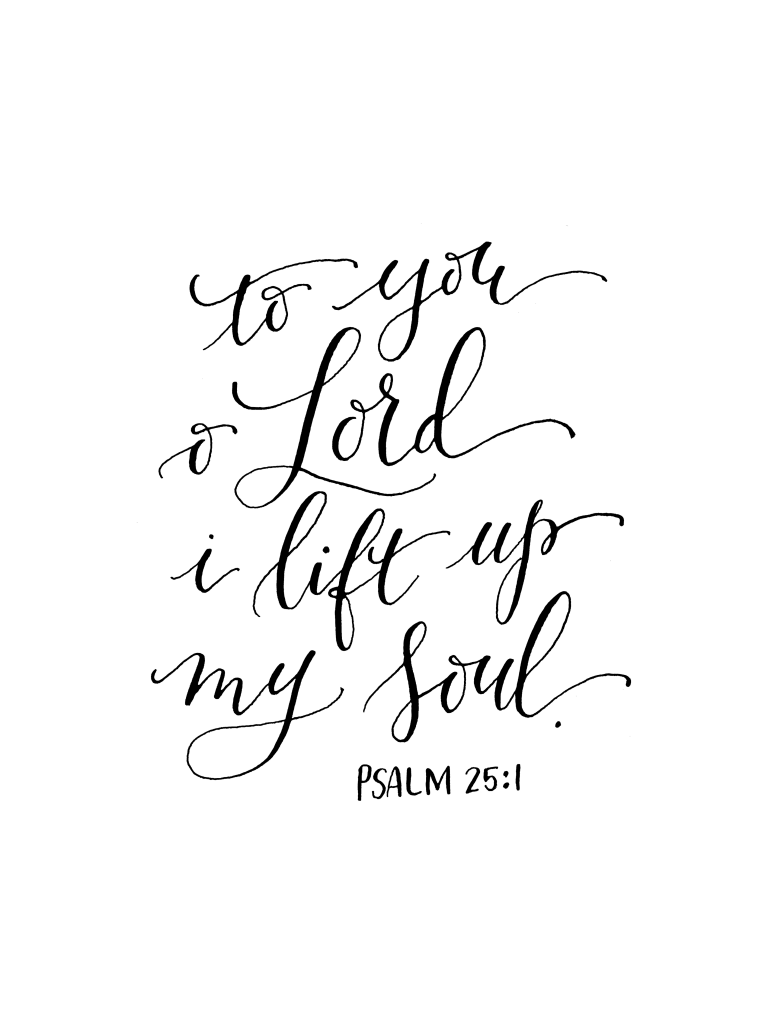 to you
o Lord
i lift up
my soul.
PSALM 25:1